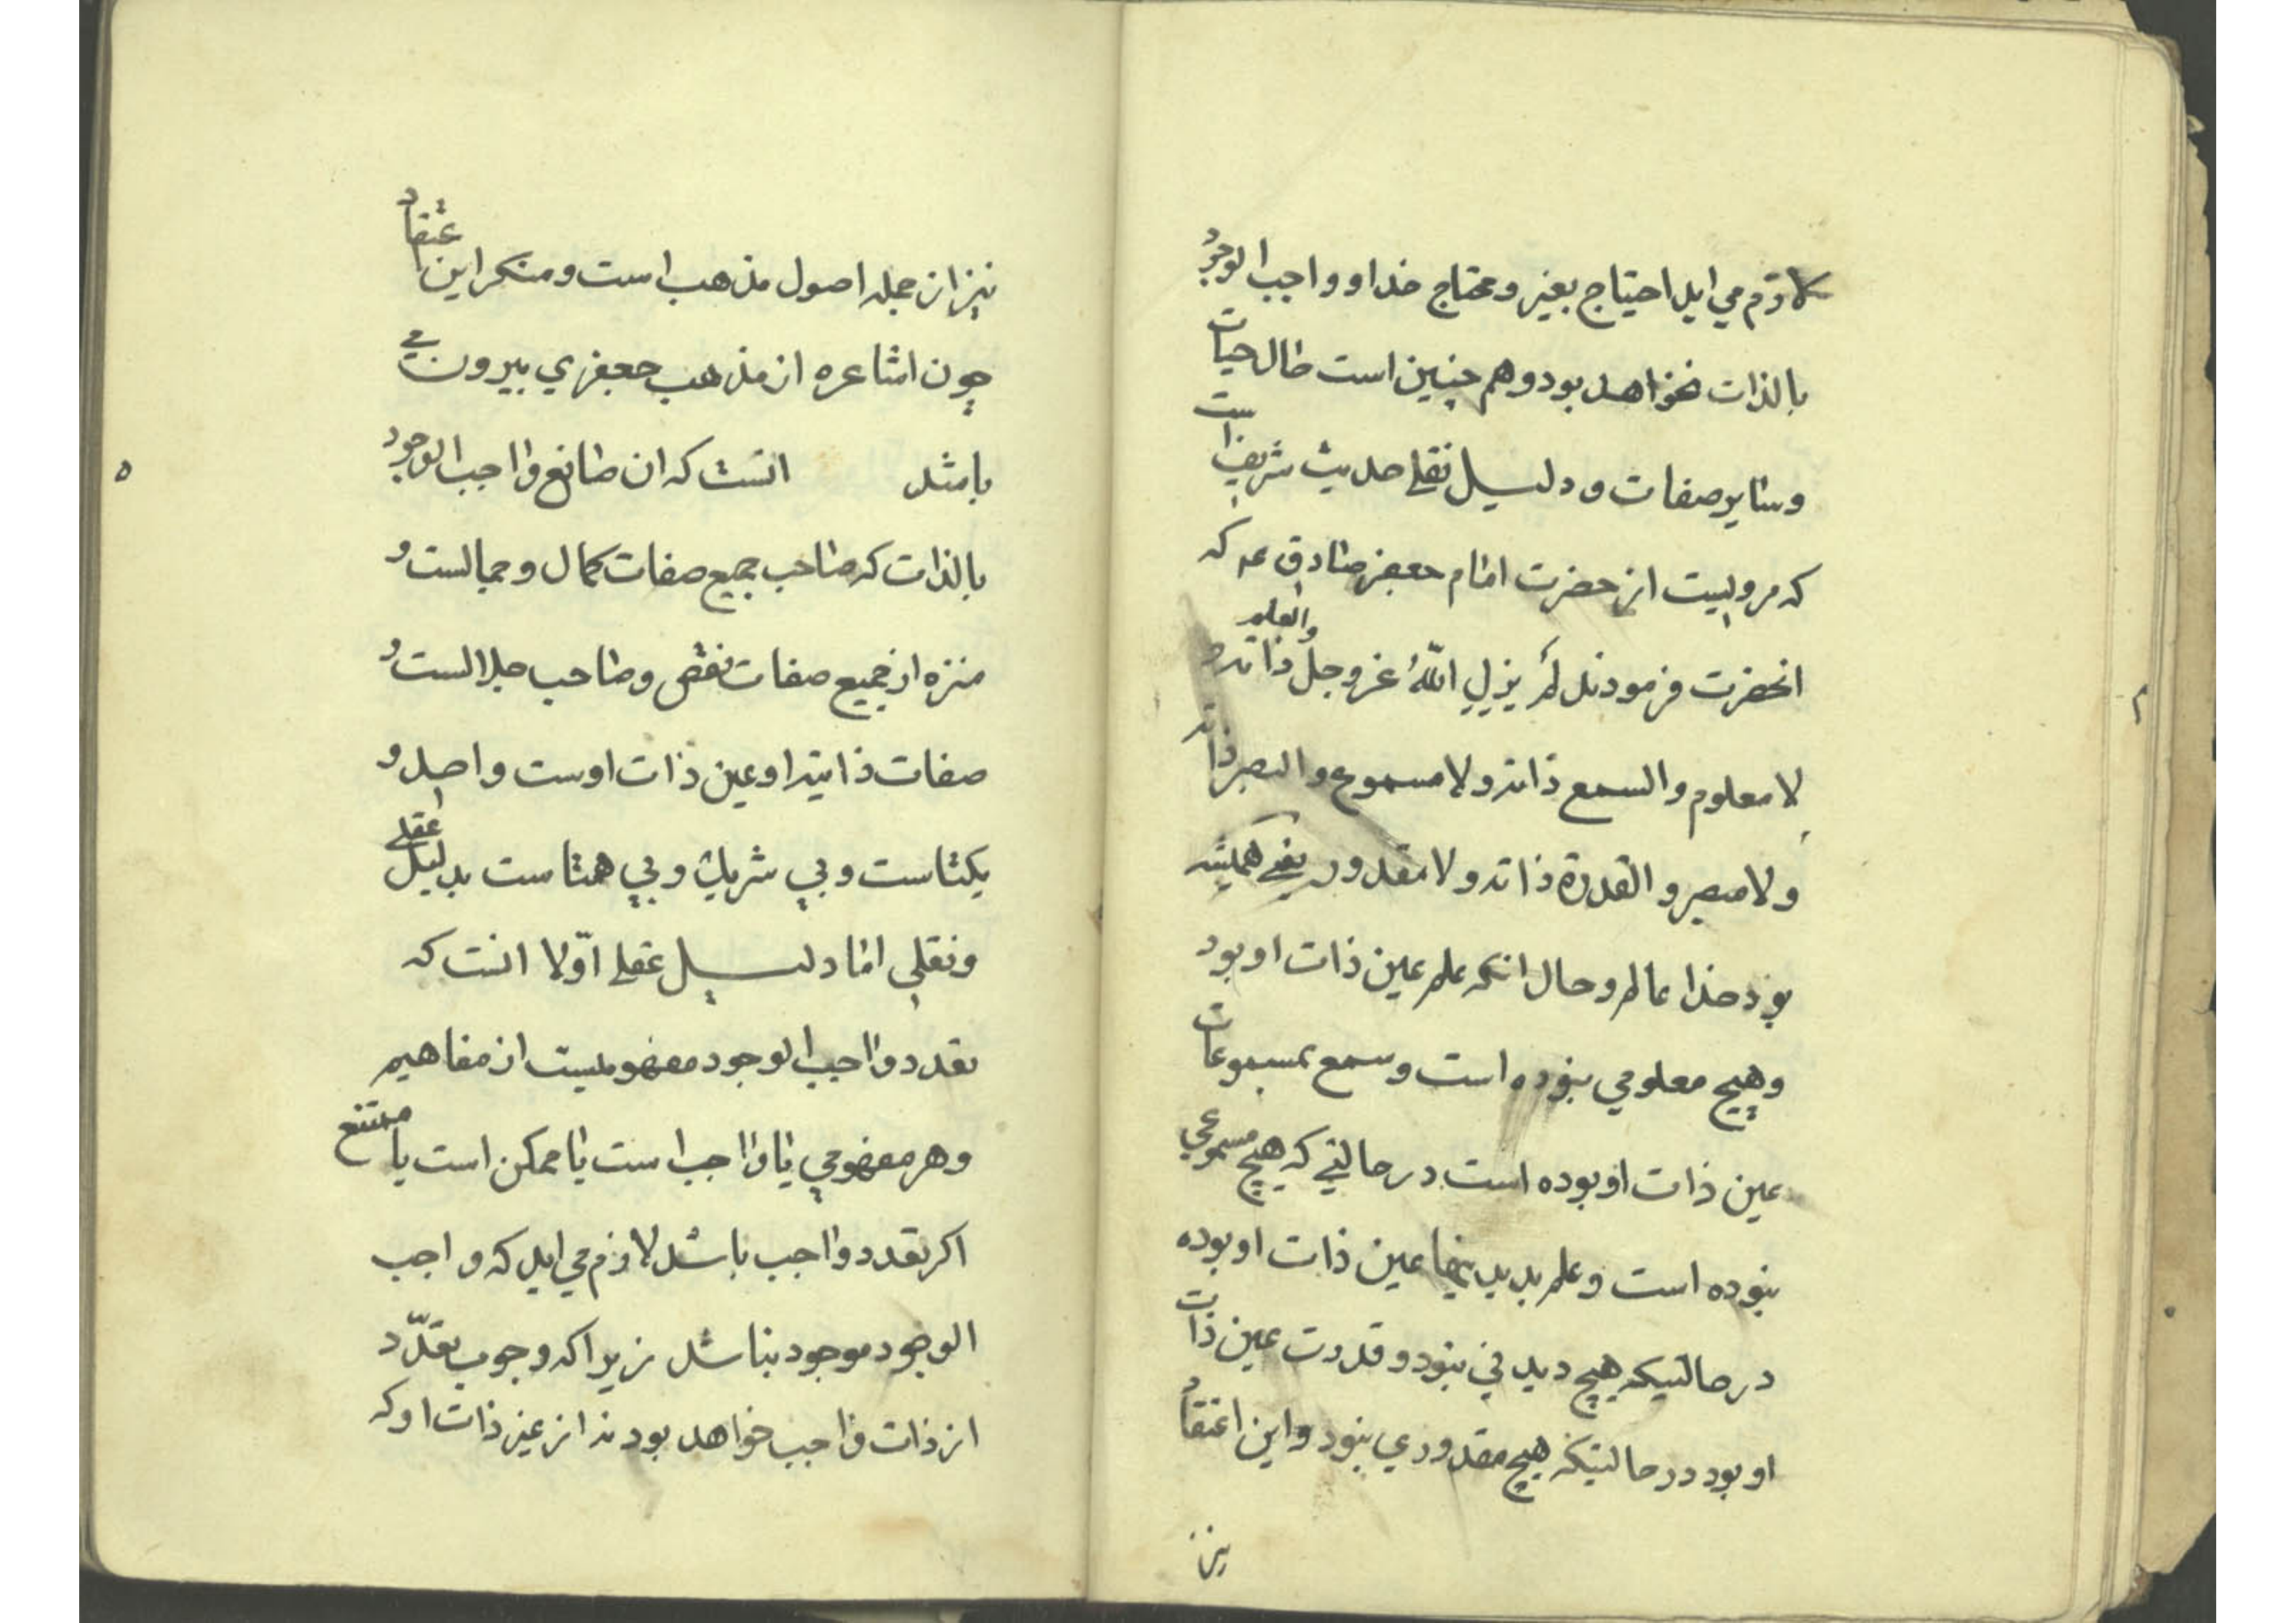 لازم می اید احتیاج بغیر و محتاج خدا و واجب الوجود
بالذات نخواهد بود و هم چنین است حال حیات
و سایر صفات و دلیل نقلی حدیث شریف است
که مرویست از حضرت امام جعفر صادق عم که
انحضرت فرمودند لم یزل الله عز و جل والعلم ذاته و
لا معلوم و السمع ذاته و لا مسموع و البصر ذاته
و لا مبصر و القدرة ذاته و لا مقدور یعنی همیشه
بود خدا عالم و حال انکه علم عین ذات او بود
و هیچ معلومی نبوده است و سمع بمسموعات
عین ذات او بوده است در حالتی که هیچ مسموعی
نبوده است و علم بدیدنیها عین ذات او بوده
در حالتیکه هیچ دیدنی نبود و قدرت عین ذات
او بود در حالتیکه هیچ مقدوری نبود و این اعتقاد
نیز
نیز از جمله اصول مذهب است و منکر این اعتقاد
چون اشاعره از مذهب جعفری بیرون می
باشد انست که ان صانع واجب الوجود
بالذات که صاحب جمیع صفات کمال و جمالست و
منزه از جمیع صفات نقص و صاحب جلالست و
صفات ذاتیه او عین ذات اوست و اصل و
یکتاست و بی شریک و بی همتاست بدلیل عقلی
و نقلی اما دلیل عقلی اوّلا انست که
تعدد واجب الوجود مفهومیست از مفاهیم
و هر مفهومی یا واجب است یا ممکن است یا ممتنع
اکر تعدد واجب باشد لازم می اید که واجب
الوجود موجود نباشد زیرا که وجوب تعدّد
از ذات واجب خواهد بود نه از غیر ذات او که
٥